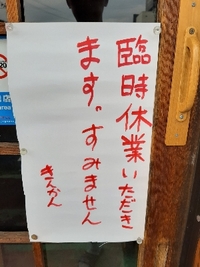 臨時休業いただき
ます。すみません
きんかん